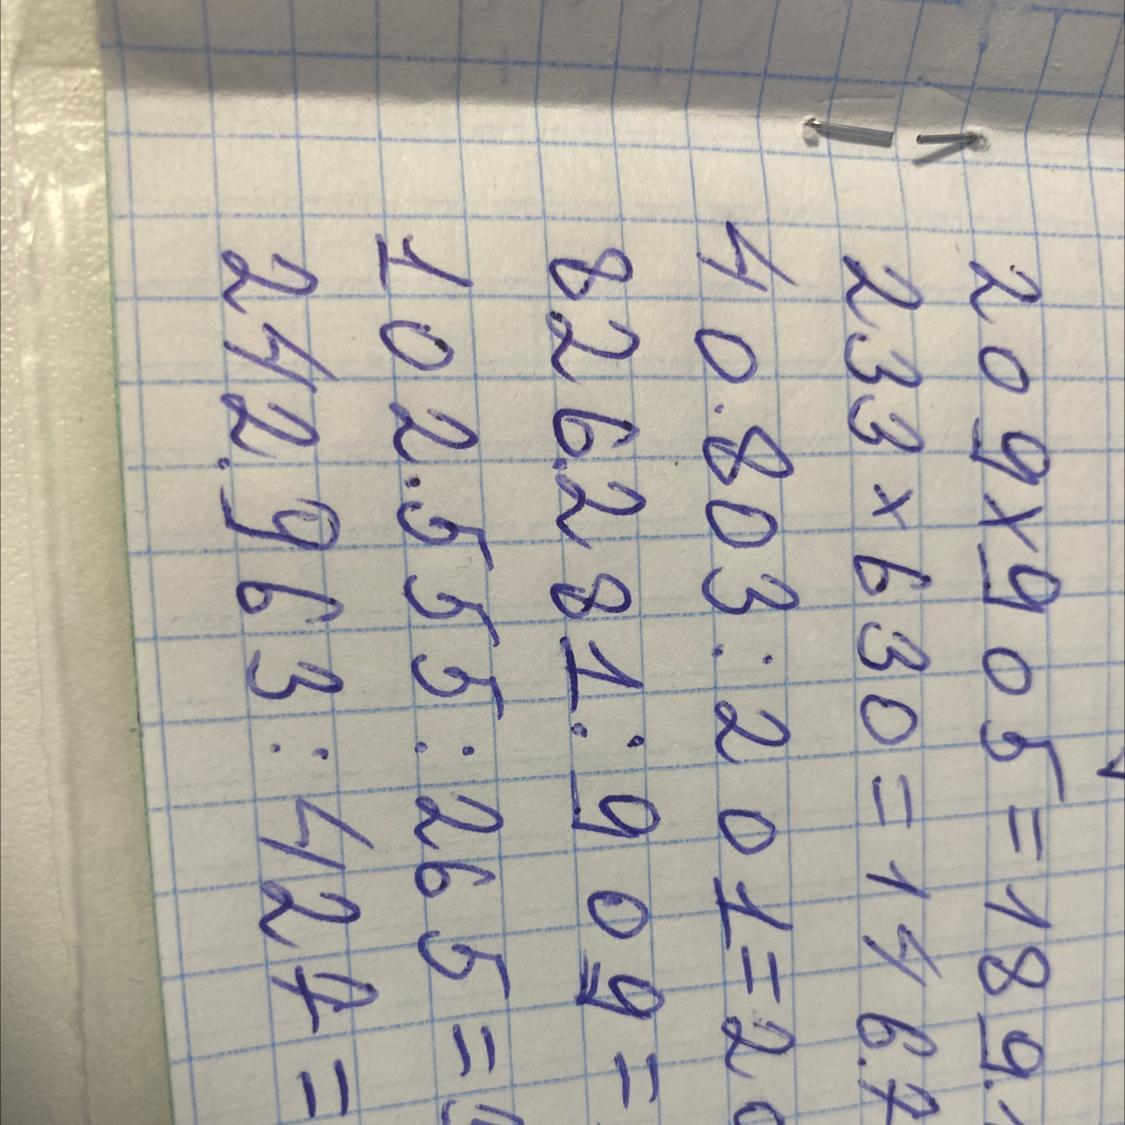 209×905=189.1
233×630=146.7
40.803:201=20
826.281:909=
102.555:265=
242.963:427=